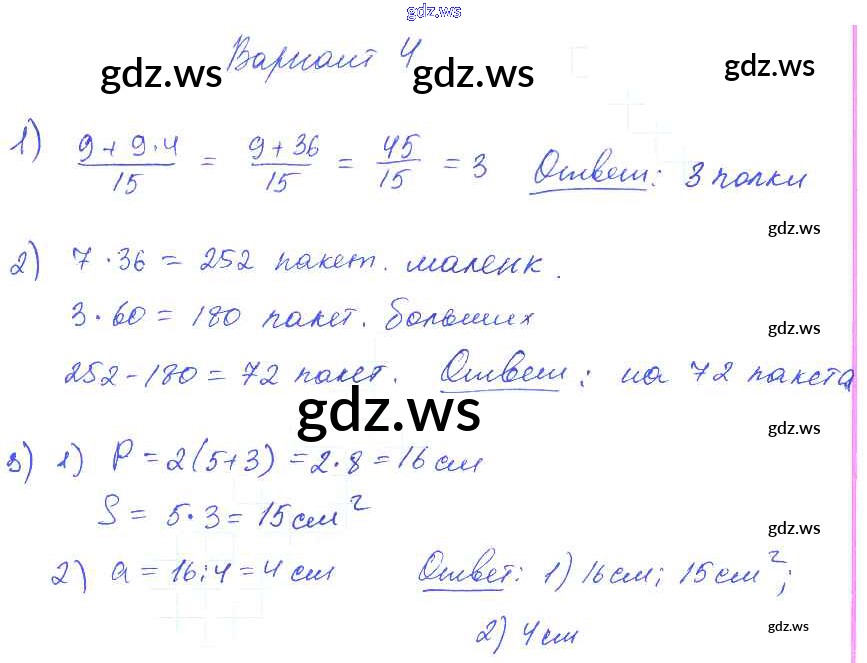 gdz.ws
Вариант 4
gdz.ws gdz.ws gdz.ws
1) (9 + 9·4)/15 = (9 + 36)/15 = 45/15 = 3 Ответ: 3 полки
gdz.ws
2) 7·36 = 252 пакет. маленк.
3·60 = 180 пакет. больших
gdz.ws
252 - 180 = 72 пакет. Ответ: на 72 пакета
gdz.ws
gdz.ws
3) 1) P = 2(5+3) = 2·8 = 16 см
S = 5·3 = 15 см²
gdz.ws
2) a = 16:4 = 4 см Ответ: 1) 16 см; 15 см²;
2) 4 см
gdz.ws